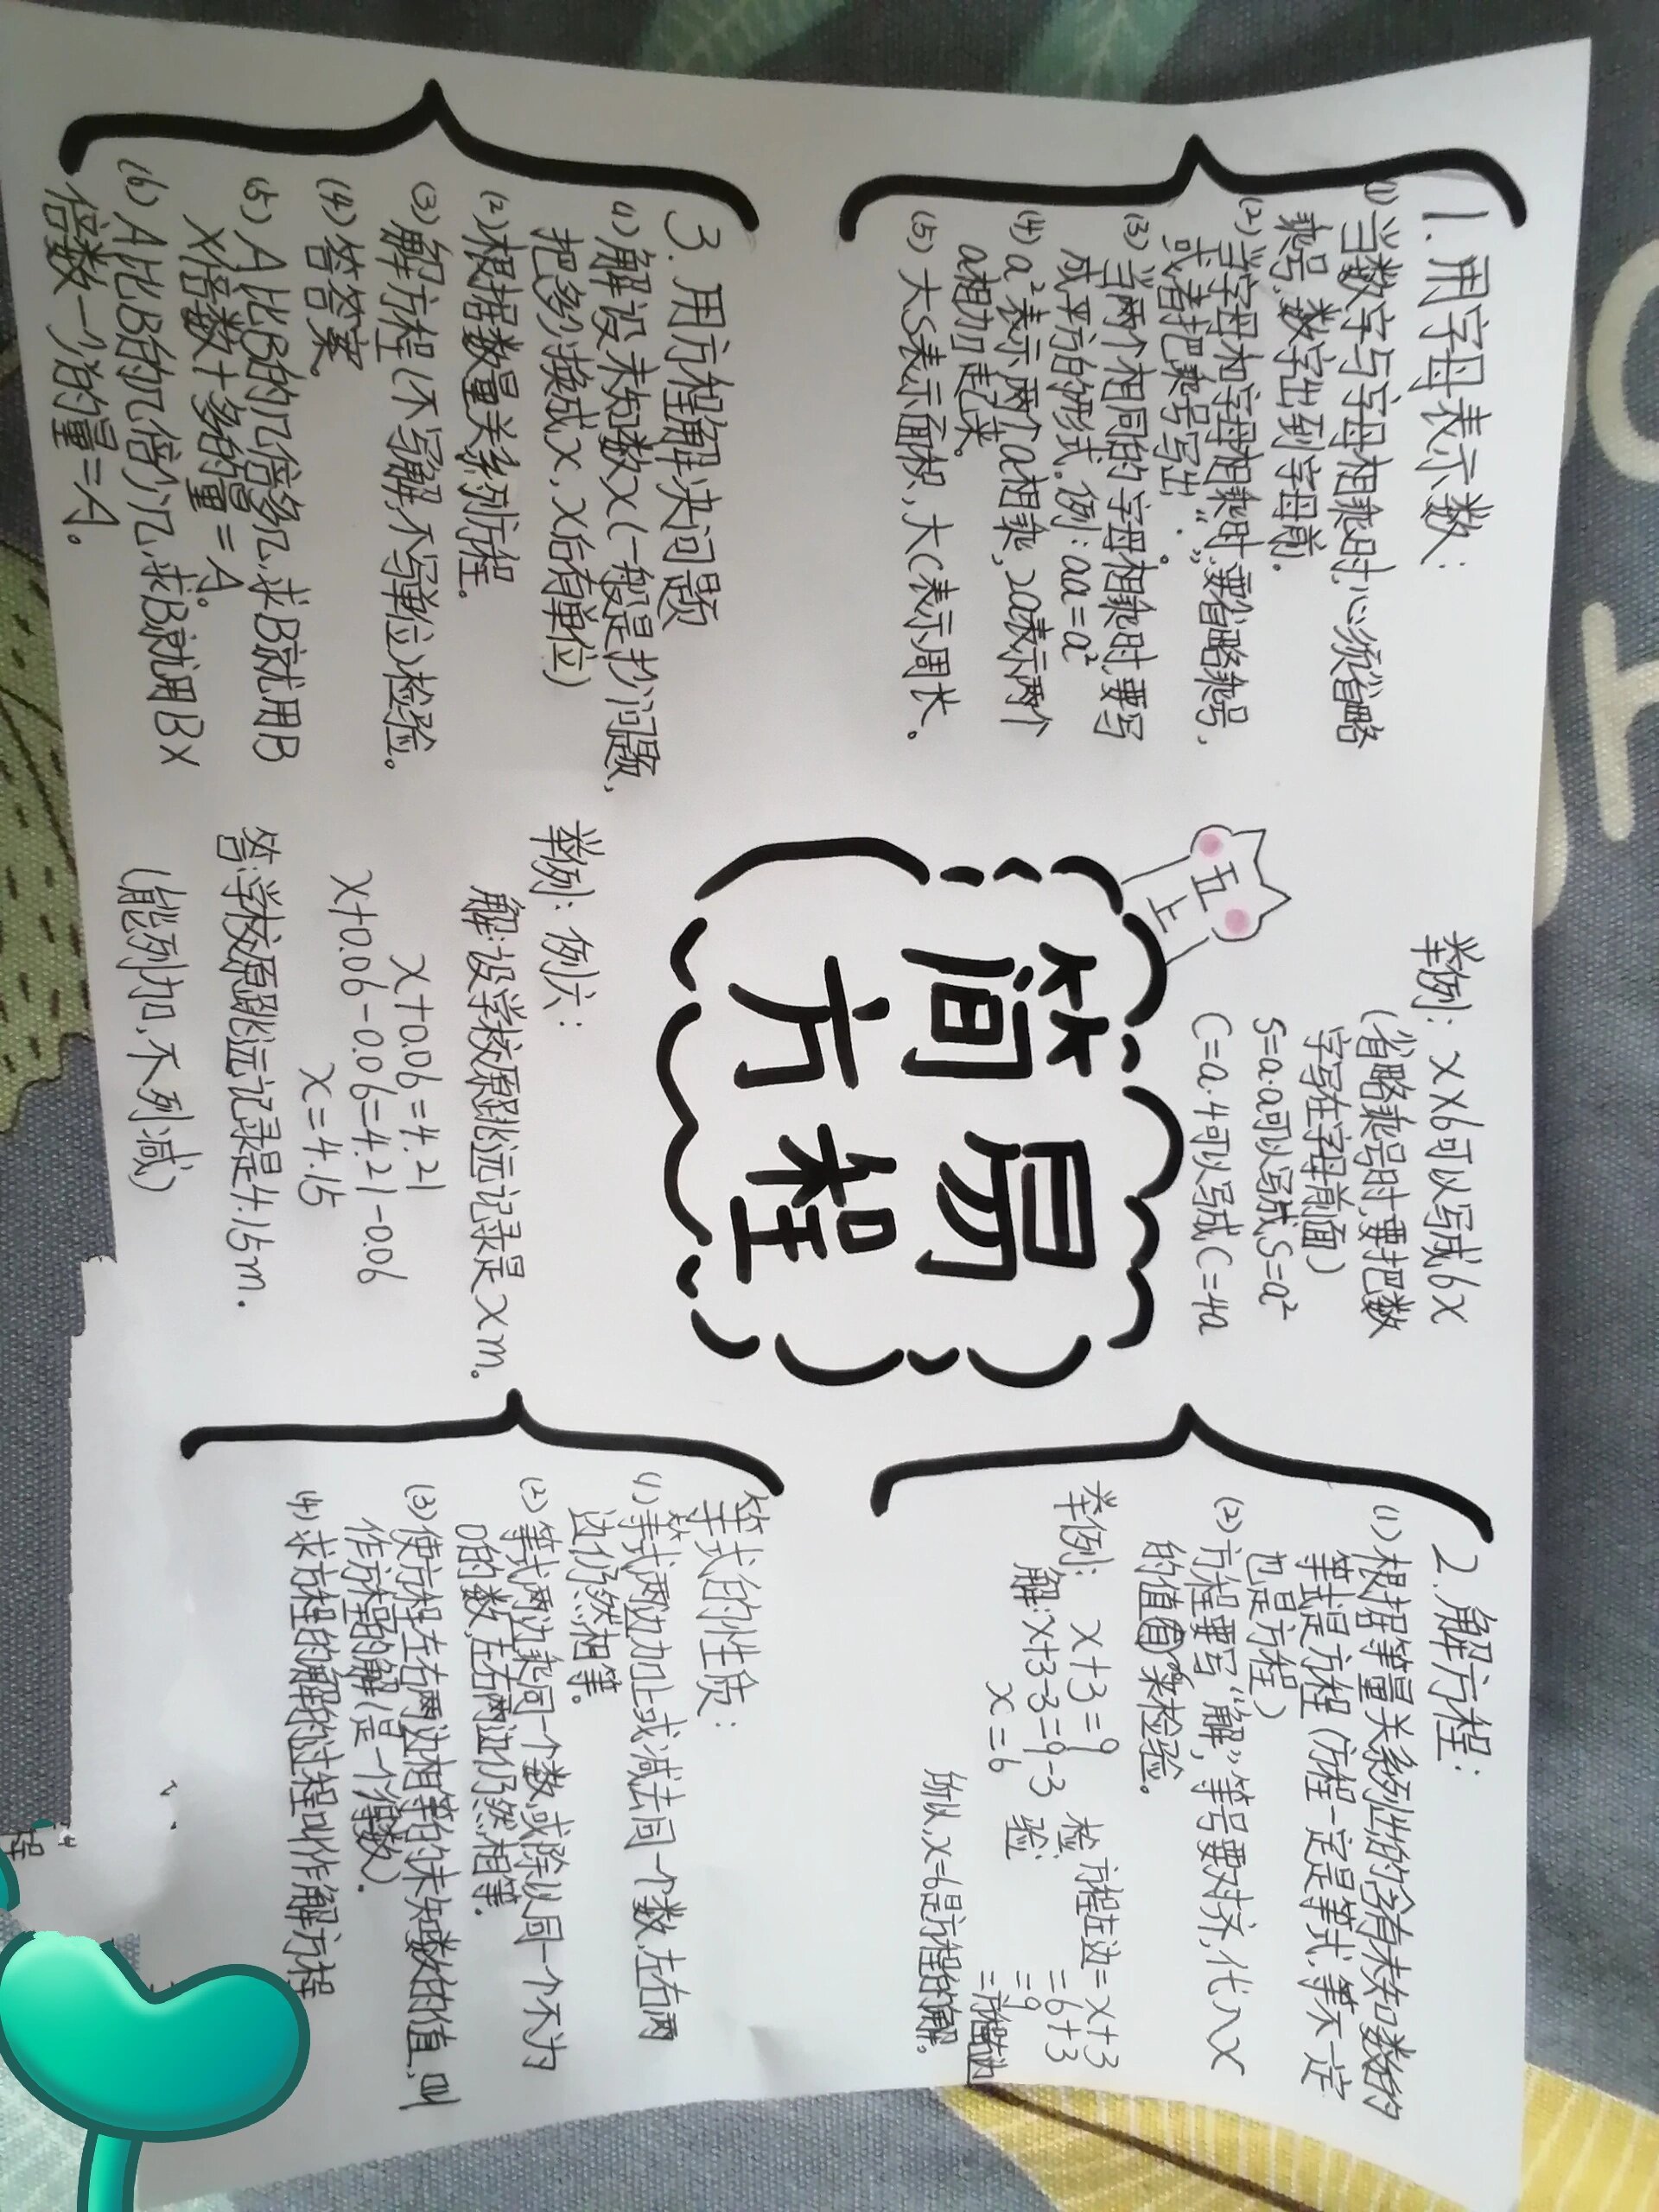 1.用字母表示数：
(1)当数字与字母相乘时,必须省略
乘号,数字出到字母前.
(2)当字母和字母相乘时,要省略乘号,
或者把乘号写出“·”。
(3)当两个相同的字母相乘时,要写
成平方的形式。例:aa=a²
(4)a²表示两个a相乘,2a表示两个
a相加起来。
(5)大S表示面积,大C表示周长。
举例:x×6可以写成6x
(省略乘号时,要把数
字写在字母前面)
S=a.a可以写成S=a²
C=a.4可以写成C=4a
五上
简易
方程
2.解方程:
(1)根据等量关系列出的含有未知数的
等式是方程(方程一定是等式,等不一定
也是方程)
(2)方程要写“解,”等号要对齐,代入x
的值来检验。
举例: x+3=9
解:x+3-3=9-3
x=6
检验
方程左边=x+3
=6+3
=9
=方程右边
所以,x=6是方程的解。
3.用方程解决问题
(1)解设未知数x(一般是抄问题,
把多少换成x,x后有单位)
(2)根据数量关系列方程。
(3)解方程(不写解,不写单位)检验。
(4)答答案。
(5)A比B的几倍多几,求B就用B
×倍数+多的量=A。
(6)A比B的几倍少几,求B就用B×
倍数-少的量=A。
举例:例六:
解:设学校原跳远记录是xm。
x+0.06=4.21
x+0.06-0.06=4.21-0.06
x=4.15
答:学校原跳远记录是4.15m.
(能列加,不列减)
等式的性质:
(1)等式两边加上或减去同一个数,左右两
边仍然相等。
(2)等式两边乘同一个数,或除以同一个不为
0的数,左右两边仍然相等.
(3)使方程左右两边相等的未知数的值,叫
作方程的解(是一个得数).
(4)求方程的解的过程叫作解方程